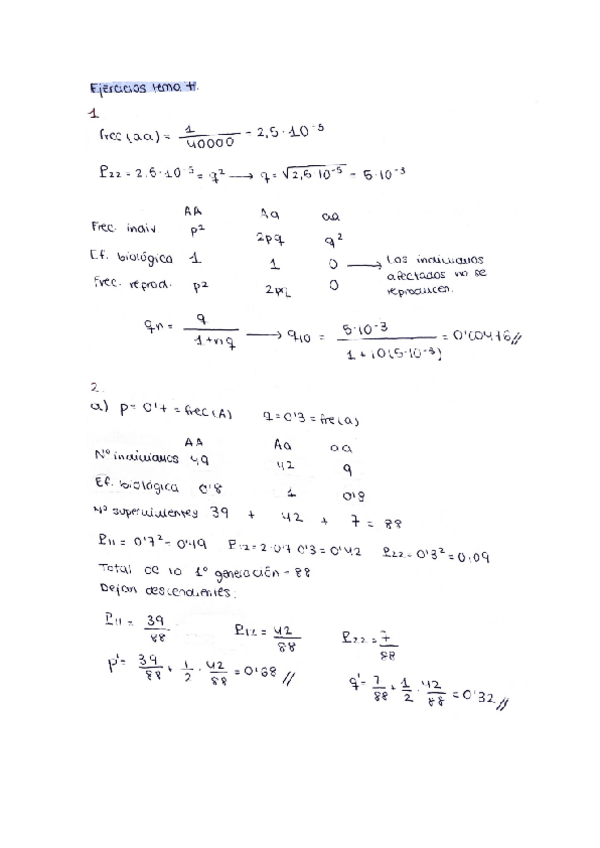 Ejercicios tema 7.
1
frec (aa) = 1/40000 = 2,5·10⁻⁵
P22 = 2,5·10⁻⁵ = q² → q = √2,5·10⁻⁵ = 5·10⁻³
AA Aa aa
Frec. indiv p² 2pq q²
Ef. biológica 1 1 0 → Los individuos
afectados no se
reproducen.
Frec. reprod. p² 2pq 0
qn = q/1+nq → q10 = 5·10⁻³/1+10(5·10⁻³) = 0'00476//
2.
a) p = 0'7 = frec(A) q = 0'3 = fre(a)
AA Aa aa
Nº individuos 49 42 9
Ef. biológica 0'8 1 0'8
Nº supervivientes 39 + 42 + 7 = 88
P11 = 0'7² = 0'49 P12 = 2·0'7·0'3 = 0'42 P22 = 0'3² = 0'09
Total de la 1º generación = 88
Dejan descendientes:
P11 = 39/88 P12 = 42/88 P22 = 7/88
p' = 39/88 + 1/2 · 42/88 = 0'68 // q' = 7/88 + 1/2 · 42/88 = 0'32 //